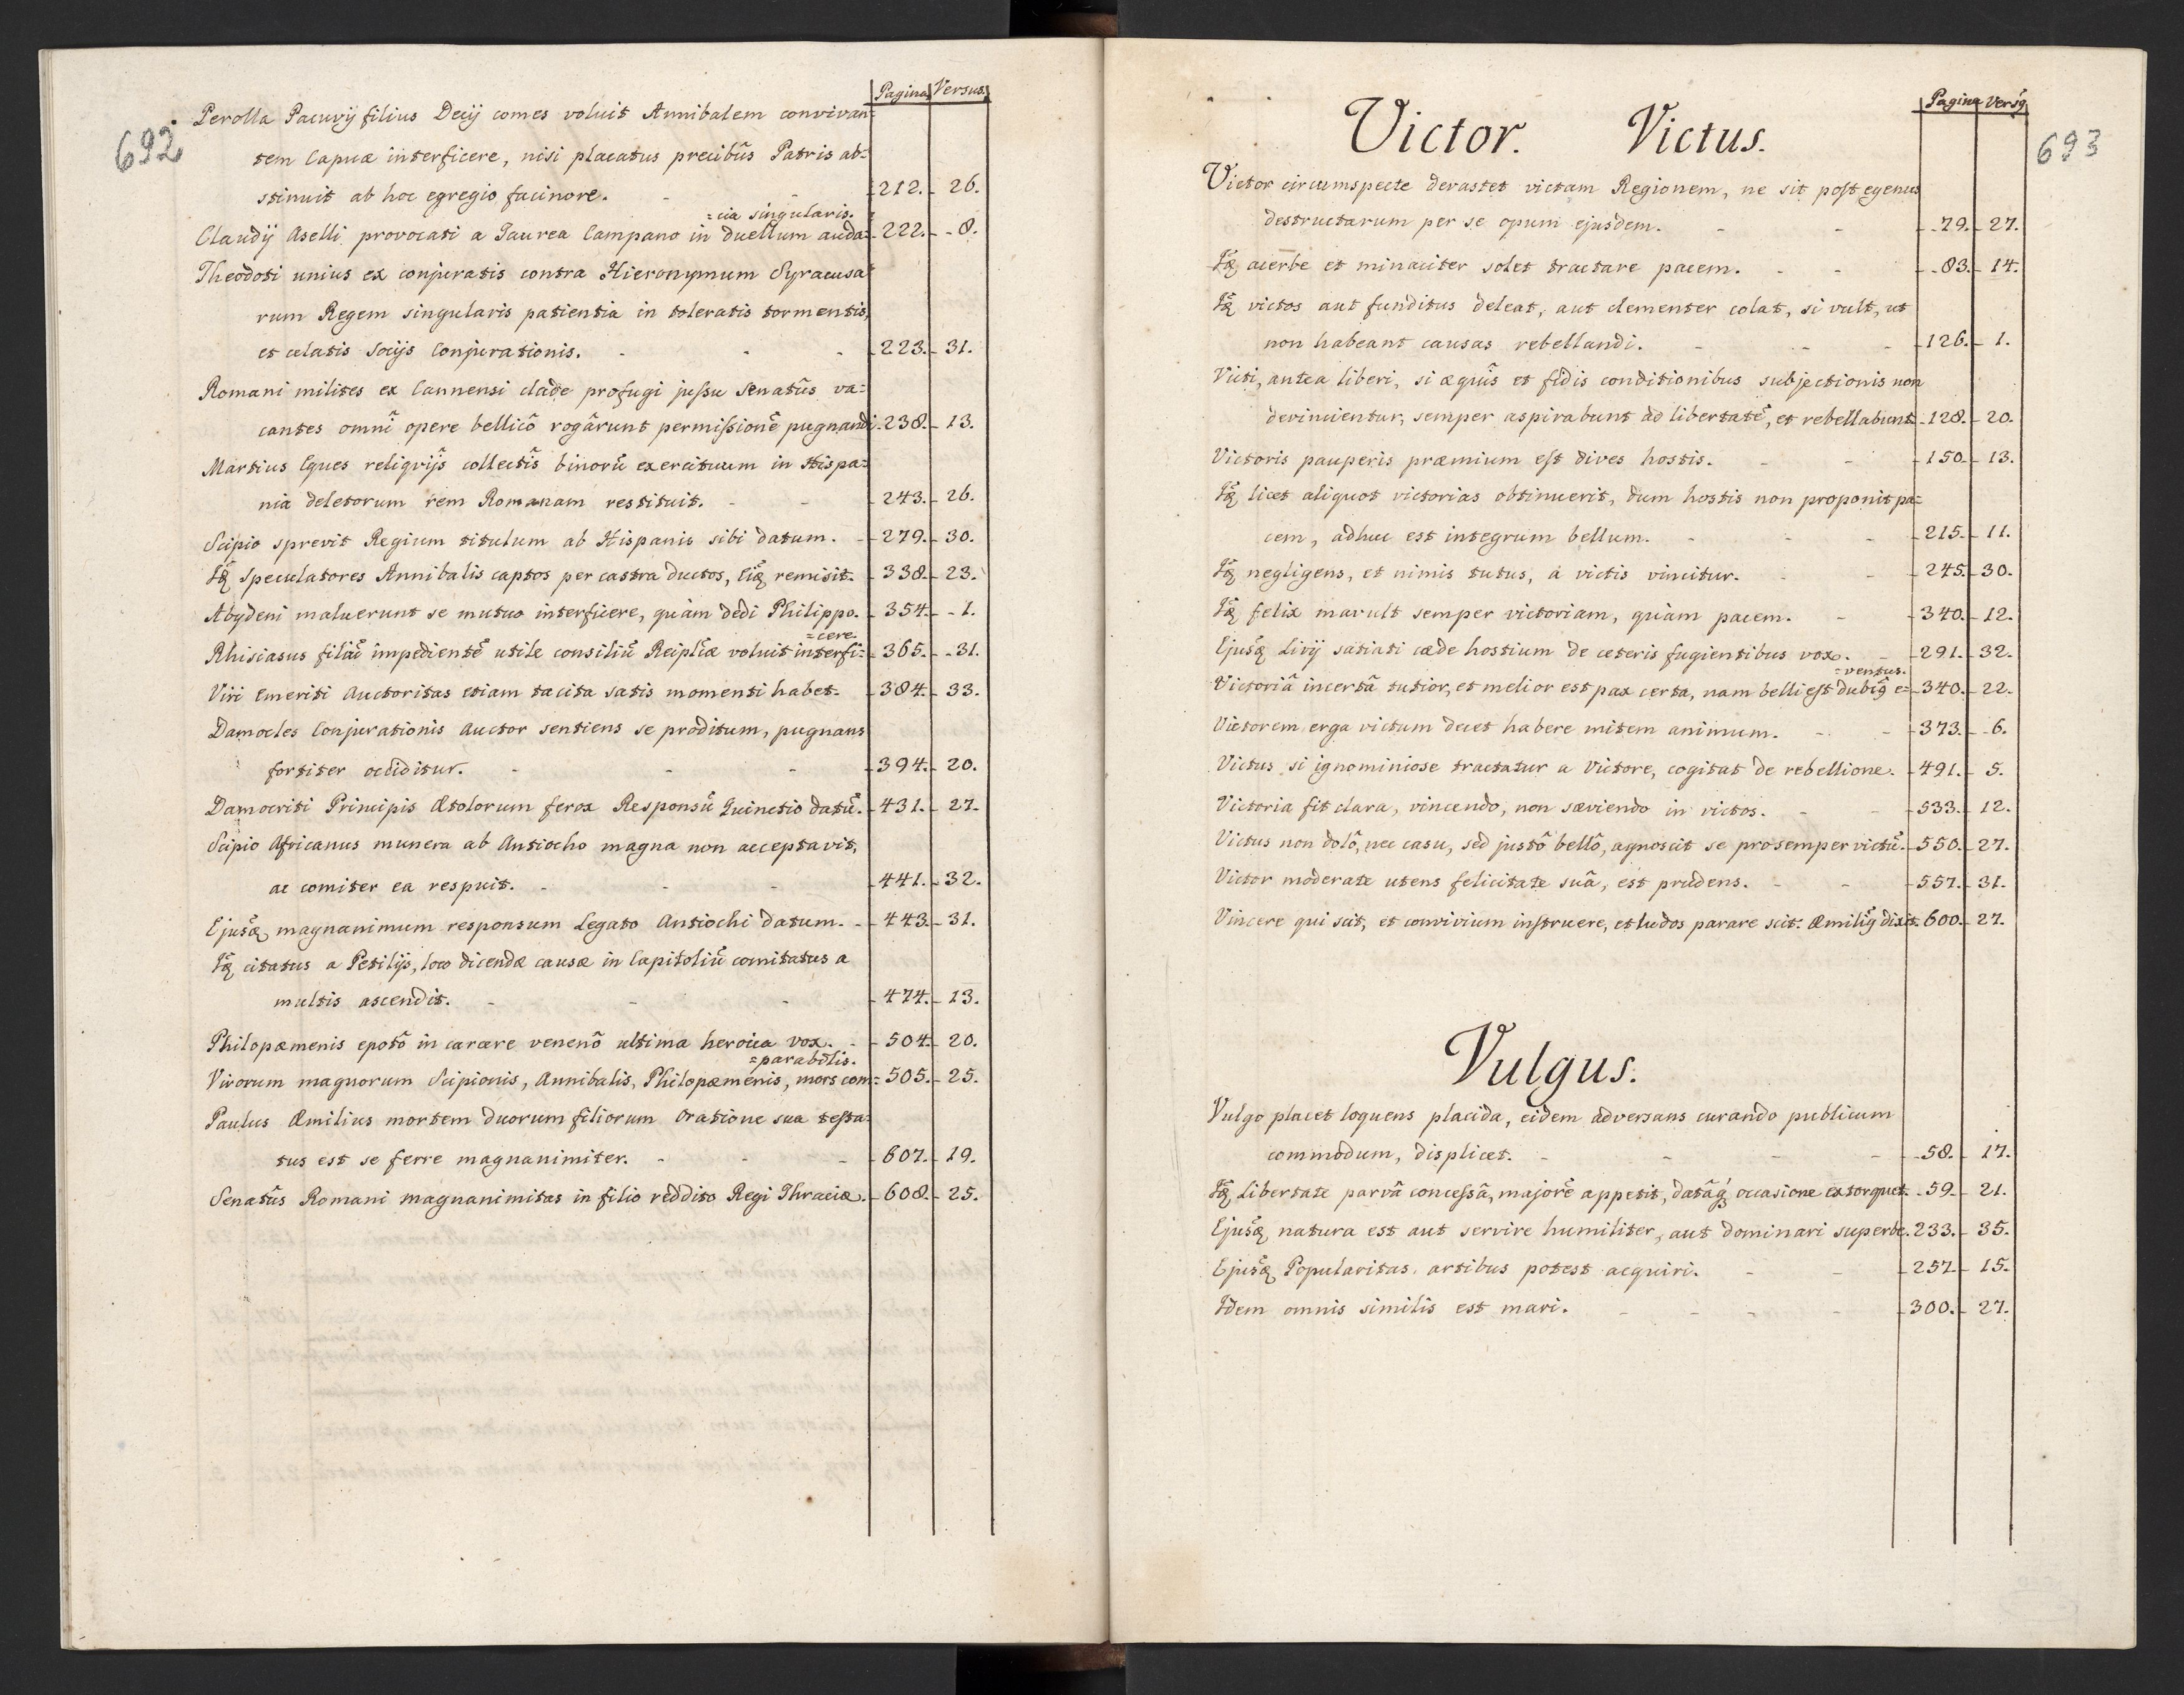 692
Pagina Versus.
Perolla Pacuvij filius Decij comes voluit Annibalem convivan=
tem Capuæ interficere, nisi placatus precibûs Patris ab=
stinuit ab hoc egregio facinore. - - 212. - 26.
=cia singularis.
Claudij Aselli provocati a Taurea Campano in duellum auda= - 222. - - 8.
Theodoti unius ex conjuratis contra Hieronymum Syracusa=
rum Regem singularis patientia in toleratis tormentis,
et celatis Socijs Conjurationis. - - - 223. - 31.
Romani milites ex Cannensi clade profugi jussu Senatûs va=
cantes omnî opere bellicô rogârunt permissionē pugnandi - 238. - 13.
Martius Eques religvijs collectîs binorū exercituum in Hispa=
nia deletorum rem Romanam restituit. - - 243. - 26.
Scipio sprevit Regium titulum ab Hispanis sibi datum. - 279. - 30.
Idē speculatores Annibalis captos per castra ductos, Eiđ remisit. - 338. - 23.
Abydeni maluerunt se mutuo interficere, quàm dedi Philippo. - 354. - - 1.
=cere.
Rhisiasus filiū impedientē utile consiliū Reiplicæ voluit interfi= - 365. - - 31.
Viri Emeriti Auctoritas etiam tacita satis momenti habet. - 384. - 33.
Damocles Conjurationis Auctor sentiens se proditum, pugnans
fortiter occiditur. - - - 394. - 20.
Damocriti Principis Ætolorum ferox Responsū Quinctio datū. - 431. - 27.
Scipio Africanus munera ab Antiocho magna non acceptavit,
ac comiter ea respuit. - - - 441. - 32.
Ejusđ magnanimum responsum Legato Antiochi datum. - - 443. - 31.
Idē citatus a Petilijs, loco dicendæ causæ in Capitoliū comitatus a
multis ascendit. - - - 474. - 13.
Philopæmenis epotô in carcere venenô ultima heroica vox. - - 504. - 20.
=parabilis.
Virorum magnorum Scipionis, Annibalis, Philopæmenis, mors com= - 505. - 25.
Paulus Æmilius mortem duorum filiorum Oratione sua testa=
tus est se ferre magnanimiter. - - - 607. - 19.
Senatûs Romani magnanimitas in filio reddito Regi Thraciæ. - 608. - 25.
693
Pagina Versꝰ
Victor. Victus.
Victor circumspecte devastet victam Regionem, ne sit post egenus
destructarum per se opum ejusdem. - - - 79. - 27.
Idē acerbe et minaciter solet tractare pacem. - - - 83. - 14.
Idē victos aut funditus deleat, aut clementer colat, si vult, ut
non habeant causas rebellandi. - - - 126. - 1.
Victi, antea liberi, si æquîs et fidis conditionibus subjectionis non
devincientur, semper aspirabunt ad libertatē, et rebellabunt. - 128. - 20.
Victoris pauperis præmium est dives hostis. - - - 150. - 13.
Idē licet aliquot victorias obtinuerit, dum hostis non proponit pa=
cem, adhuc est integrum bellum. - - - 215. - 11.
Idē negligens, et nimis tutus, à victis vincitur. - - 245. - 30.
Idē felix mavult semper victoriam, quàm pacem. - - 340. - 12.
Ejusđ Livij satiati cæde hostium de ceteris fugientibus vox. - - 291. - 32.
=ventus.
Victoriâ incertâ tutior, et melior est pax certa, nam belli est dubiꝰ e= - 340. - 22.
Victorem erga victum decet habere mitem animum. - - 373. - - 6.
Victus si ignominiose tractatur a Victore, cogitat de rebellione. - 491. - 5.
Victoria fit clara, vincendo, non sæviendo in victos. - - 533. - 12.
Victus non dolô, nec casu, sed justô bellô, agnoscit se pro semper victū. - 550. - 27.
Victor moderate utens felicitate suâ, est prudens. - - - 557. - 31.
Vincere qui scit, et convivium instruere, et ludos parare scit: Æmiliꝰ dixit. 600. - 27.
Vulgus.
Vulgo placet loquens placida, eidem adversans curando publicum
commodum, displicet. - - - - - 58. - 17.
Idē libertate parvâ concessâ, majorē appetit, datâq́ occasione extorquet. - 59. - 21.
Ejusđ natura est aut servire humiliter, aut dominari superbe. 233. - 35.
Ejusđ Popularitas artibus potest acquiri. - - - 257. - 15.
Idem omnis similis est mari. - - - - - 300. - 27.